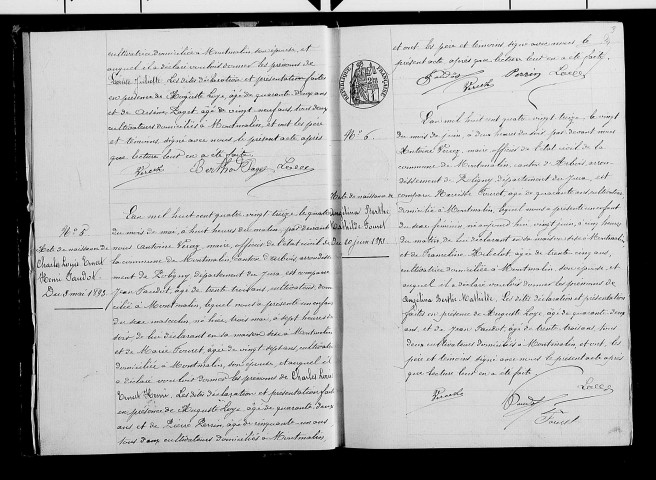 cultivatrice domiciliée à Montmalin son épouse, et
auquel il a déclaré vouloir donner les prénoms de
Juliette. Les dites déclaration et présentation faites
en présence de Auguste Loye, âgé de quarante deux ans
et de Désiré Paget, âgé de vingt neuf ans, tous deux
cultivateurs domiciliés à Montmalin, et ont les père
et témoins signé avec nous le présent acte après
que lecture leur en a été faite.
Berthod Paget Loye
N° 5
Acte de naissance de
Charles Louis Ernest
Henri Paudot
Du 3 mai 1893
L'an mil huit cent quatre vingt treize le quatre
du mois de mai, à huit heures du matin, par devant
nous Antoine Virey, maire, officier de l'état civil de
la commune de Montmalin canton d'Arbois arrondisse-
ment de Poligny département du Jura, est comparu
Jean Paudot, âgé de trente trois ans cultivateur domi-
cilié à Montmalin, lequel nous a présenté un enfant
du sexe masculin, né hier, trois mai, à sept heures du
soir, de lui déclarant en sa maison sise à Montmalin
et de Marie Fouret, âgée de vingt sept ans, cultivatrice
domiciliée à Montmalin, son épouse, et auquel il
a déclaré vouloir donner les prénoms de Charles Louis
Ernest Henri. Les dites déclaration et présentation faites
en présence de Auguste Loye, âgé de quarante deux
ans et de Pierre Perrin, âgé de cinquante un ans
tous deux cultivateurs domiciliés à Montmalin
et ont les père et témoins signé avec nous, le
présent acte après que lecture leur en a été faite.
Paudot Perrin Loye
RÉPUBLIQUE FRANÇAISE
N° 6
Acte de naissance de
Angelina Berthe
Mathilde Fouret
Du 20 juin 1893
L'an mil huit cent quatre vingt treize, le vingt
du mois de juin, à deux heures du soir, par devant nous
Antoine Virey, maire officier de l'état civil de la
commune de Montmalin, canton d'Arbois arron-
dissement de Poligny, département du Jura, est
comparu Fouret, âgé de quarante ans cultivateur
domicilié à Montmalin, lequel nous a présenté un enfant
du sexe féminin, né aujourd'hui, vingt juin, à cinq heures
du matin, de lui déclarant, en sa maison sise à Montmalin
et de Francine, âgée de trente cinq ans,
cultivatrice domiciliée à Montmalin, son épouse, et
auquel il a déclaré vouloir donner les prénoms de
Angelina Berthe Mathilde. Les dites déclaration et présentation
faites en présence de Auguste Loye âgé de quarante deux
ans, et de Jean Paudot, âgé de trente trois ans, tous
deux cultivateurs domiciliés à Montmalin et ont, les
père et témoins signé avec nous le présent acte après
que lecture leur en a été faite.
Loye
Paudot
Fouret